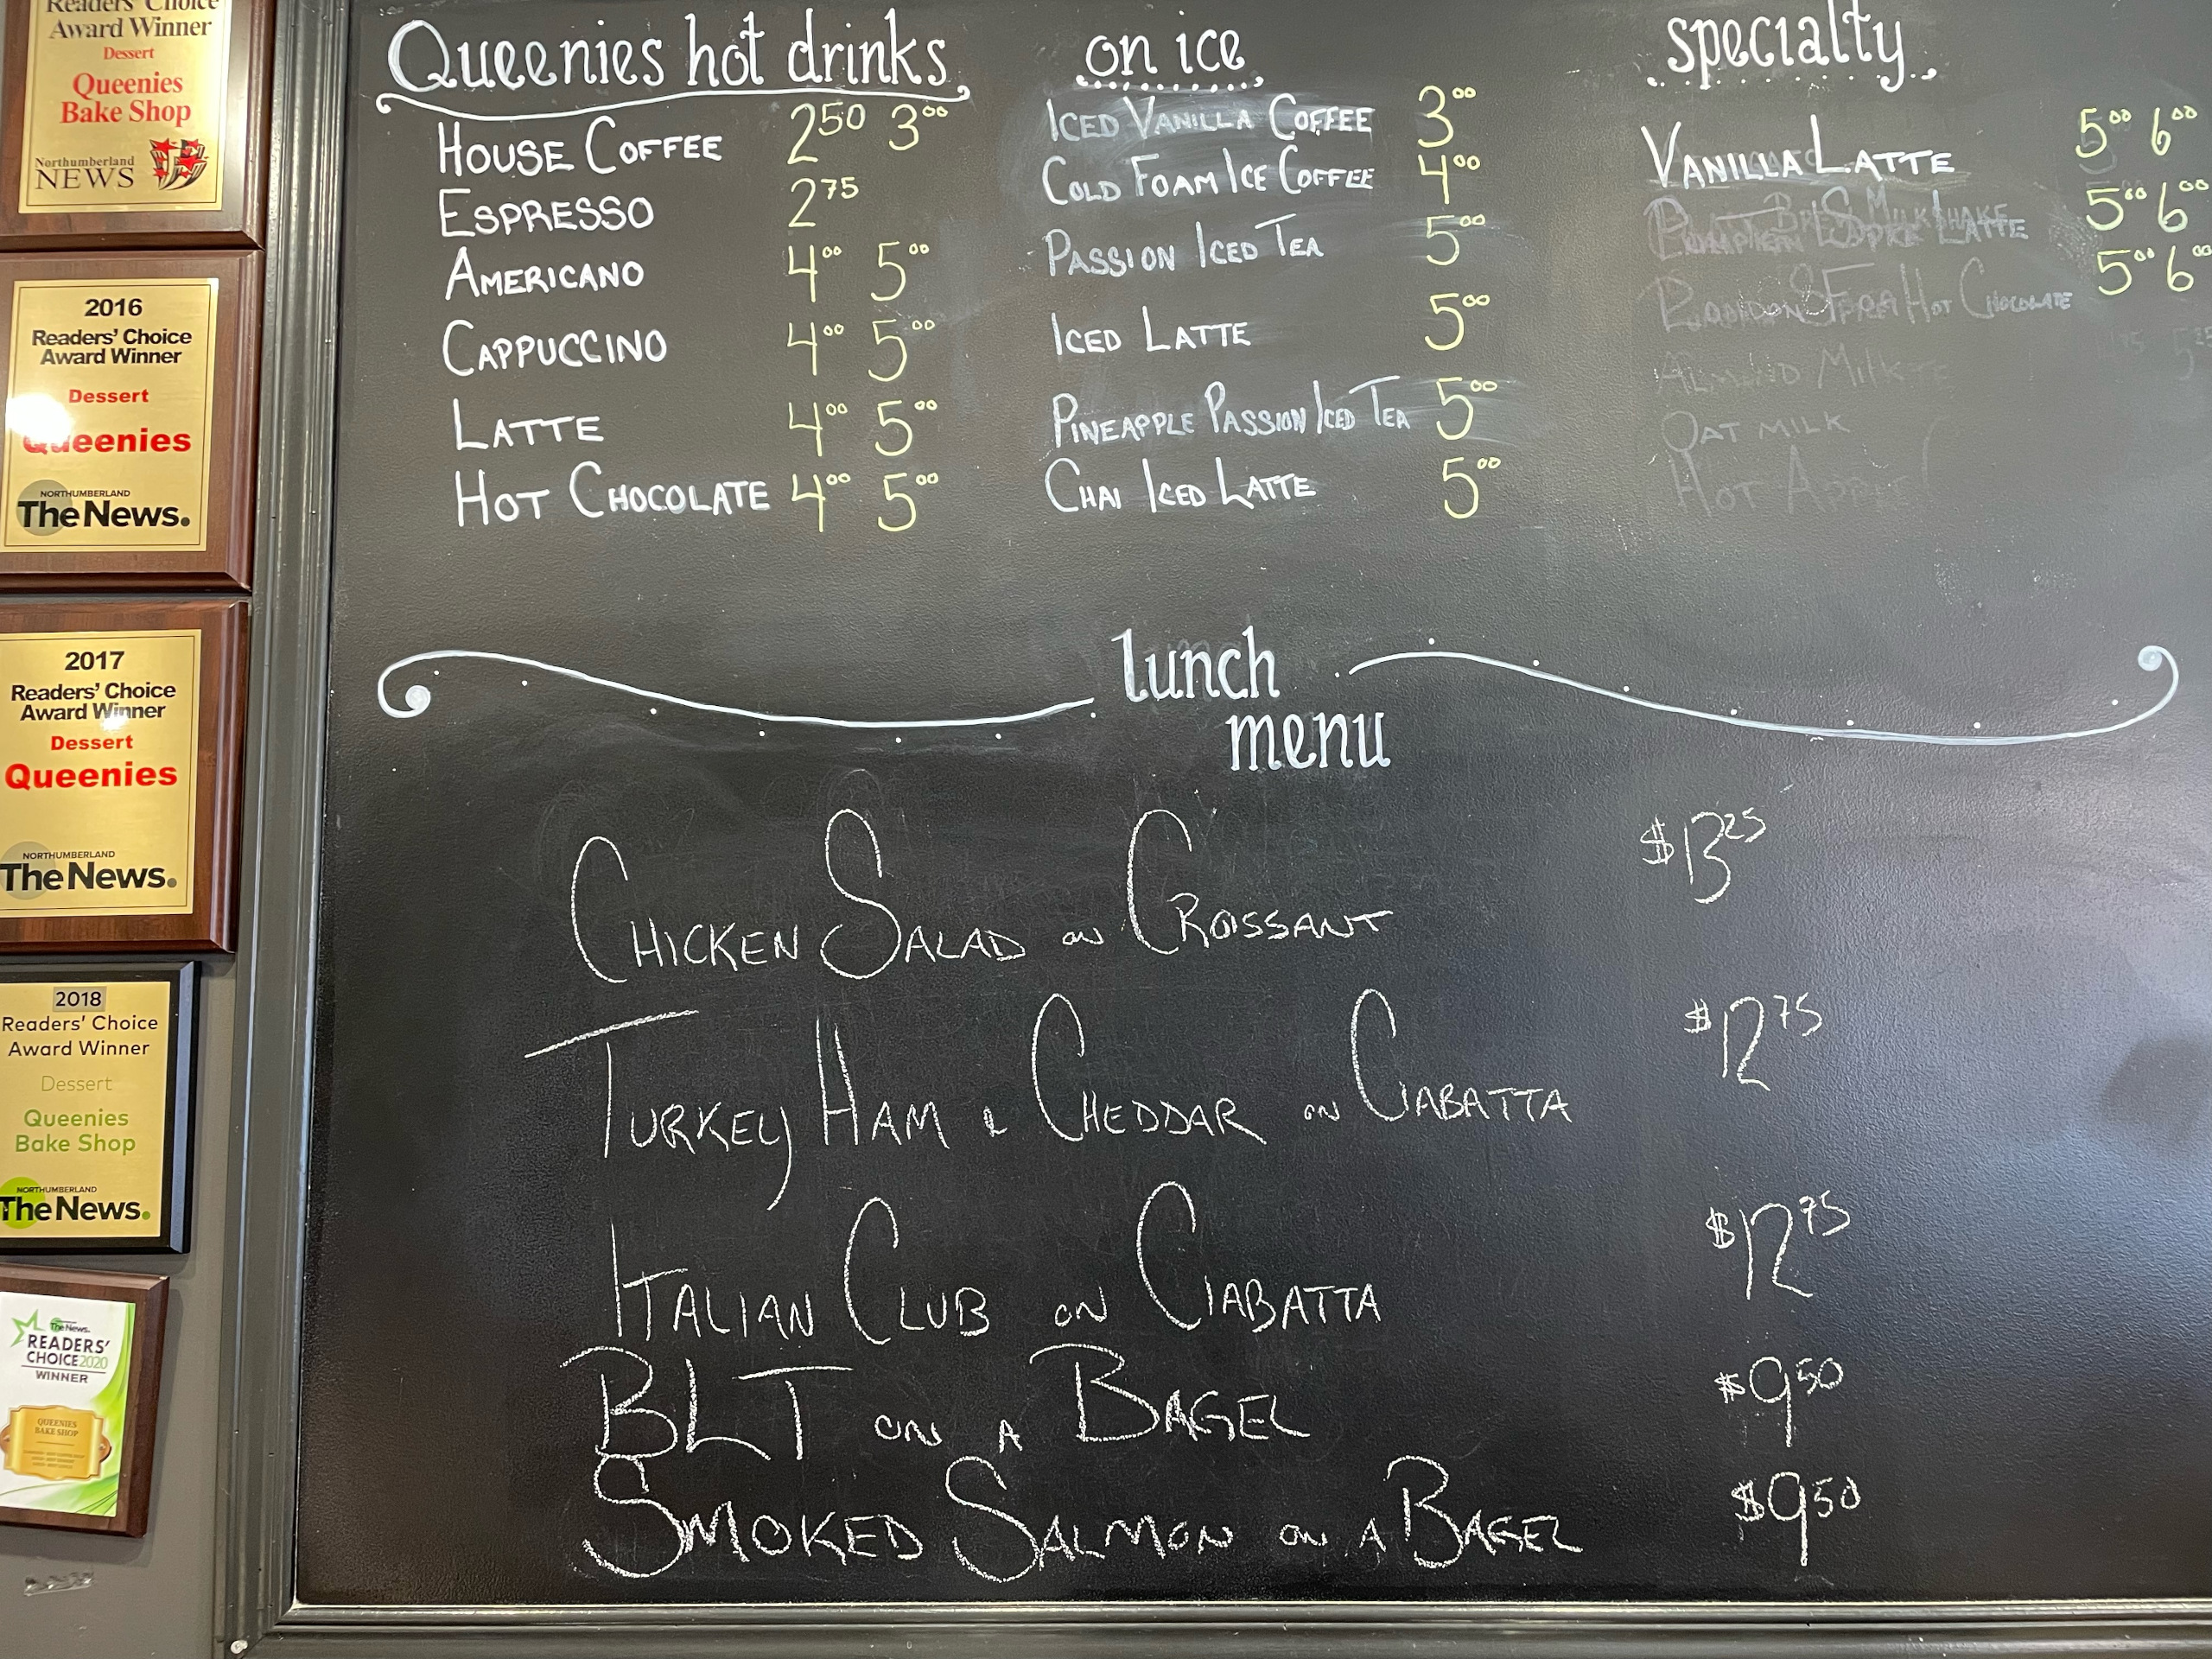 Readers' Choice
Award Winner
Dessert
Queenies
Bake Shop
Northumberland
NEWS
2016
Readers' Choice
Award Winner
Dessert
Queenies
NORTHUMBERLAND
The News.
2017
Readers' Choice
Award Winner
Dessert
Queenies
NORTHUMBERLAND
The News.
2018
Readers' Choice
Award Winner
Dessert
Queenies
Bake Shop
NORTHUMBERLAND
The News.
The News.
READERS'
CHOICE 2020
WINNER
QUEENIES
BAKE SHOP
Queenies hot drinks
HOUSE COFFEE 2 50 3 00
ESPRESSO 2 75
AMERICANO 4 00 5 00
CAPPUCCINO 4 00 5 00
LATTE 4 00 5 00
HOT CHOCOLATE 4 00 5 00
on ice
ICED VANILLA COFFEE 3 00
COLD FOAM ICE COFFEE 4 00
PASSION ICED TEA 5 00
ICED LATTE 5 00
PINEAPPLE PASSION ICED TEA 5 00
CHAI ICED LATTE 5 00
specialty
VANILLA LATTE 5 00 6 00
LATTE 5 00 6 00
HOT CHOCOLATE 5 00 6 00
ALMOND MILK
OAT MILK
HOT
lunch
menu
CHICKEN SALAD ON CROISSANT $13 25
TURKEY HAM & CHEDDAR ON CIABATTA $12 75
ITALIAN CLUB ON CIABATTA $12 75
BLT ON A BAGEL $9 50
SMOKED SALMON ON A BAGEL $9 50